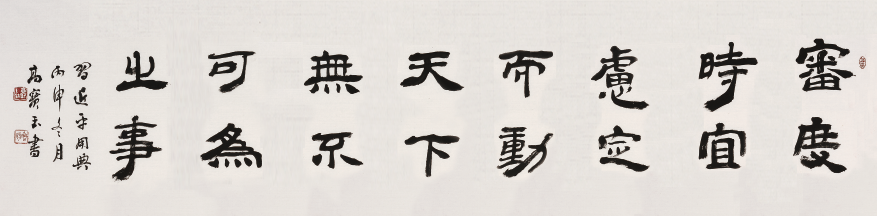 審度
時宜
慮定
而動
天下
無不
可為
之事
習近平用典
丙申冬月
高寶玉書